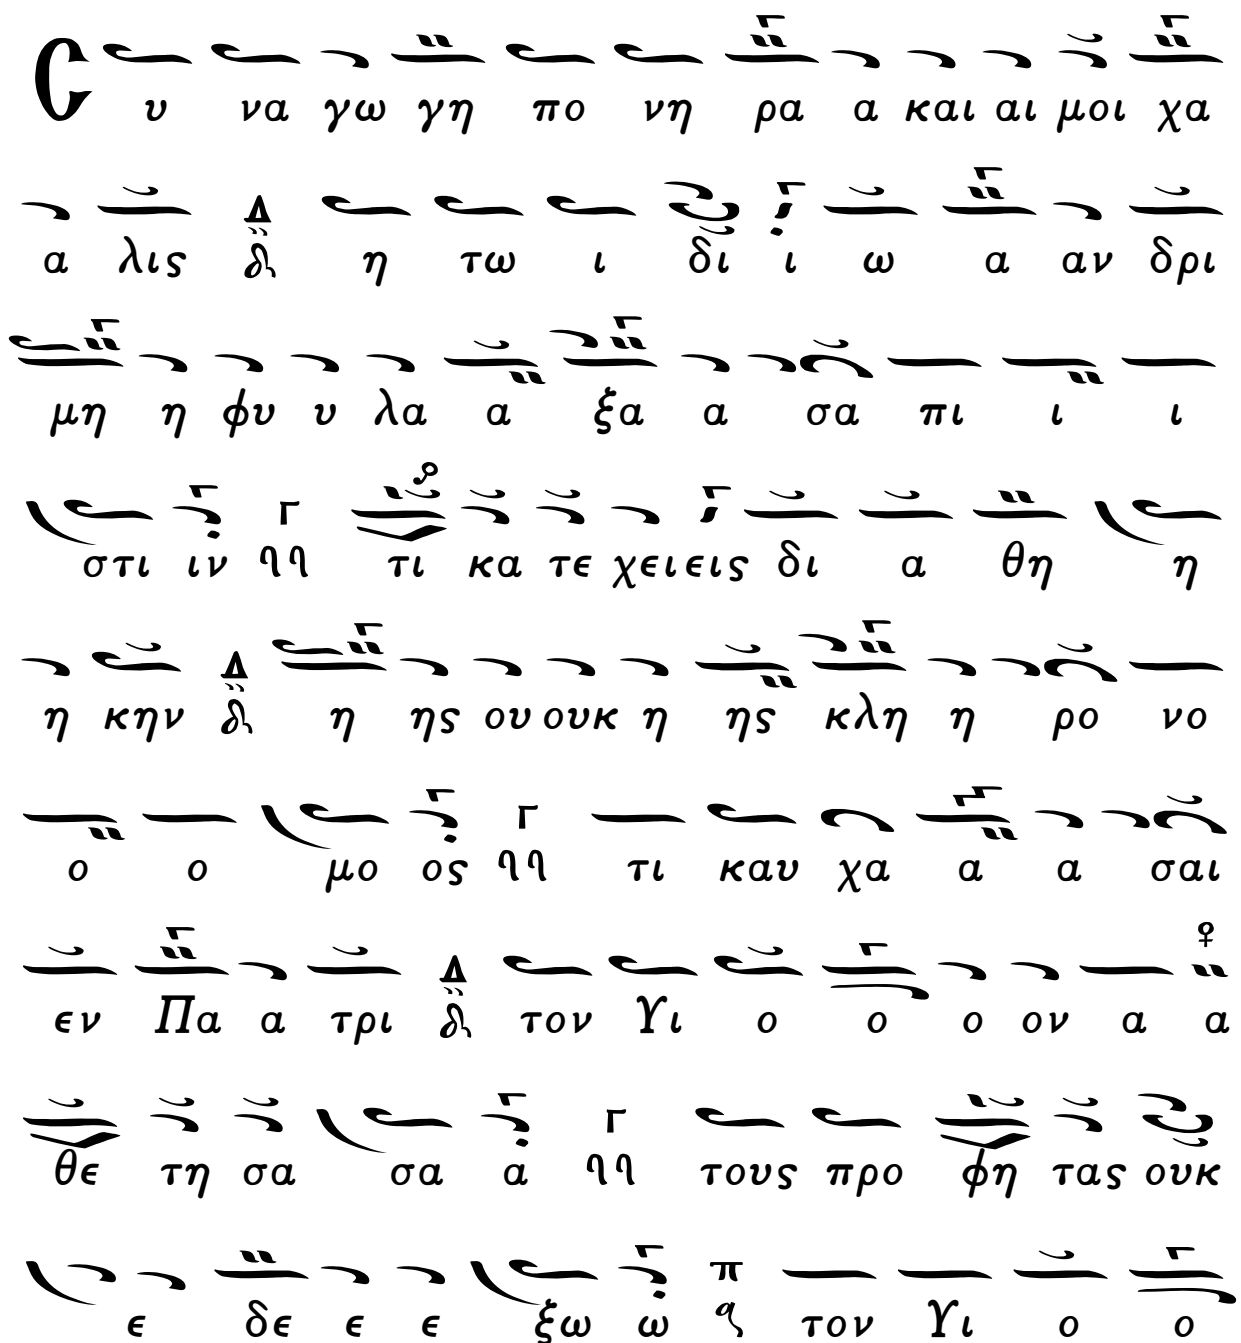 C υ να γω γη πο νη ρα α και αι μοι χα
α λις Δ η τω ι δι ι ω α αν δρι
μη η φυ υ λα α ξα α σα πι ι ι
στι ιν Γ τι κα τε χει εις δι α θη η
η κην Δ η ης ου ουκ η ης κλη η ρο νο
ο ο μο ος Γ τι καυ χα α α σαι
εν Πα α τρι Δ τον Υι ο ο ο ον α α
θε τη σα σα α Γ τους προ φη τας ουκ
ε δε ε ε ξω ω π τον Υι ο ο